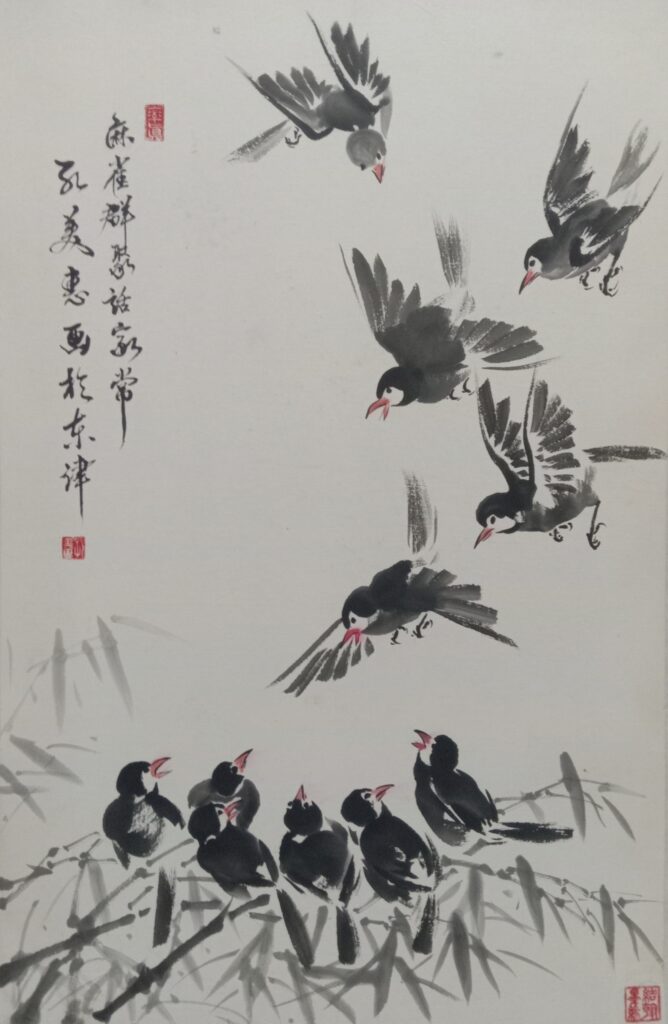 麻雀群聚話家常
孔美惠画於东津